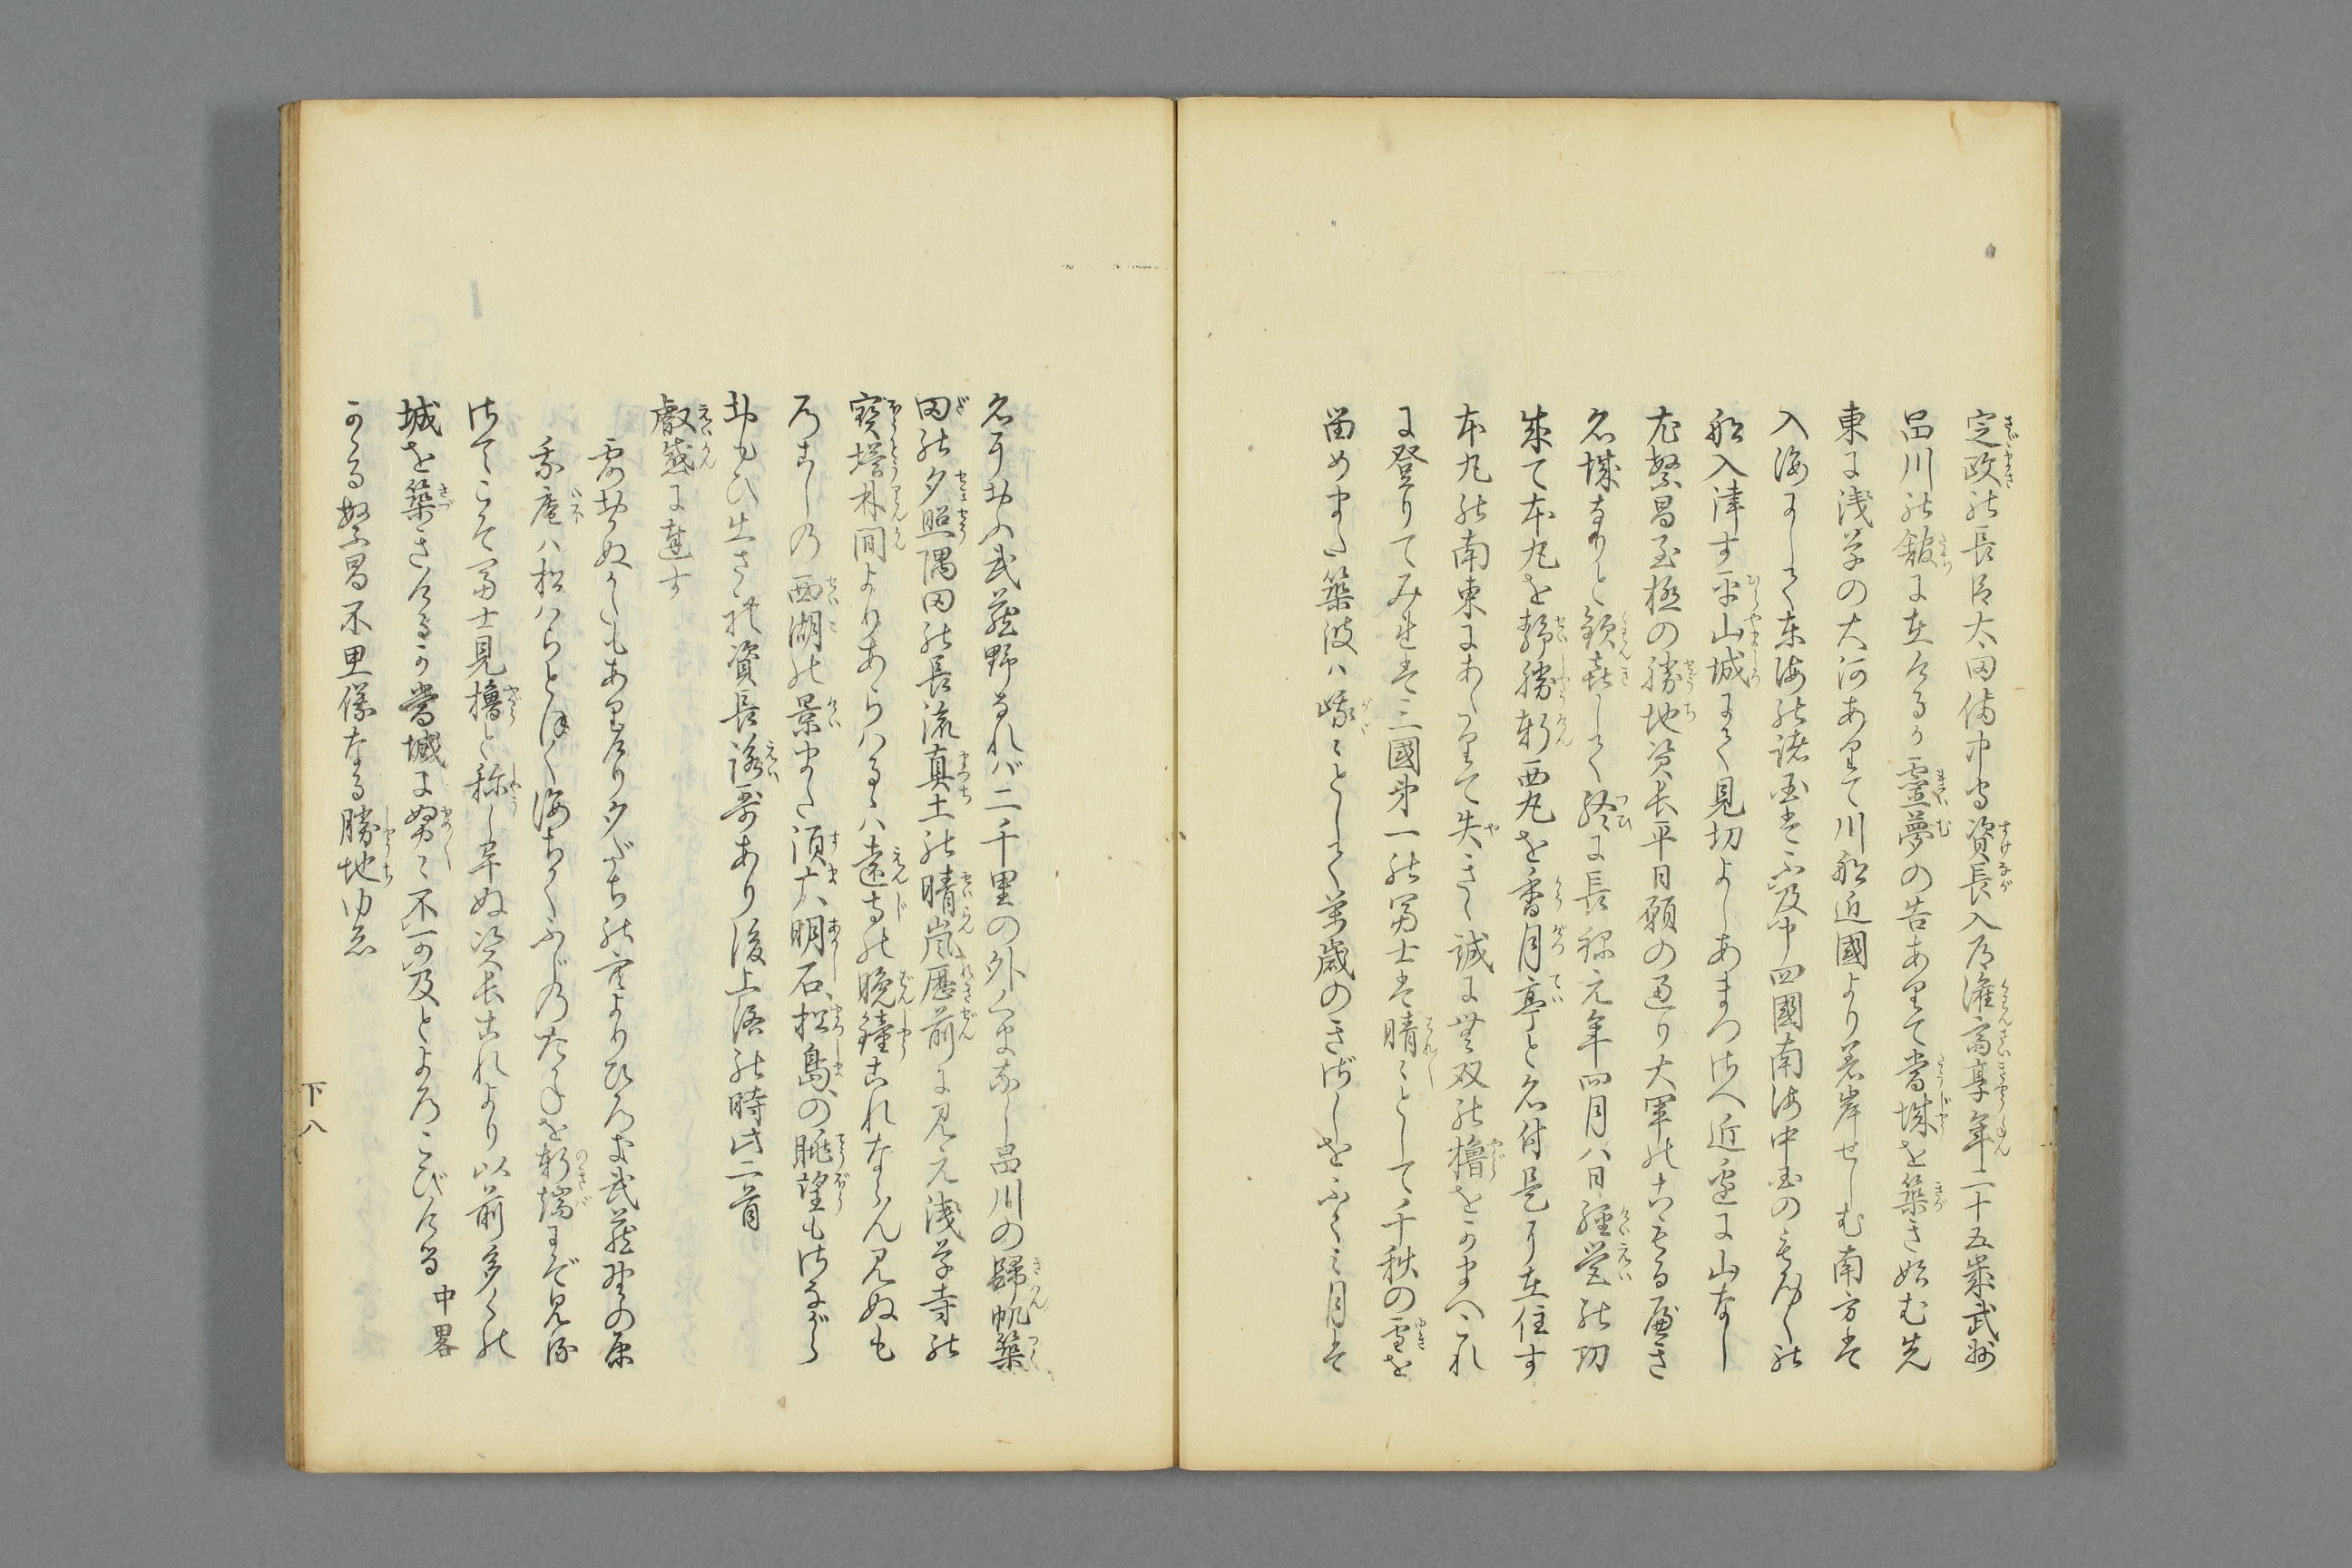 定政の長臣太田備中守資長入道灌斎享年二十五歳武州
品川の舘に在けるが霊夢の告ありて当城を築き始む先
東に浅草の大河ありて川船近國より着岸せしむ南方は
入海にして東海の諸国は不及申四國南海中国の
船入津す平山城にて見切よしあまつさへ近辺に山なし
尤繁昌至極の勝地資長平日願の通り大軍の
名城なりと歓喜して終に長禄元年四月八日経営の功
成て本丸を静勝軒西丸を香月亭と名付是に在住す
本丸の南東にあたりて矢きく誠に無双の櫓をかまへこれ
に登りてみれは三國第一の冨士は晴々として千秋の雪を
留めまた築波は峨々として万歳のきざしをふくみ月は
名におふ武蔵野なれバ二千里の外くまなし品川の帰帆築
田の夕照隅田の長流真土の晴嵐歴前に見え浅草寺の
寳塔林間よりあらハるゝハ遠寺の晩鐘これならん見ぬも
ろこしの西湖の景また須广明石松島の眺望もさながら
おもひ出され資長詠哥あり後上洛の時此二首
叡感に達す
露おかぬかたもありけり夕だちの空よりひろき武蔵野の原
我庵ハ松ハらとほく海ちかくふじのたかねを軒端にぞ見る
さてこそ冨士見櫓と称し畢ぬ資長これより以前多くの
城を築きけるが当城に努々不可及とよろこびける 中畧
かゝる繁昌不思儀なる勝地ゆゑ
下八